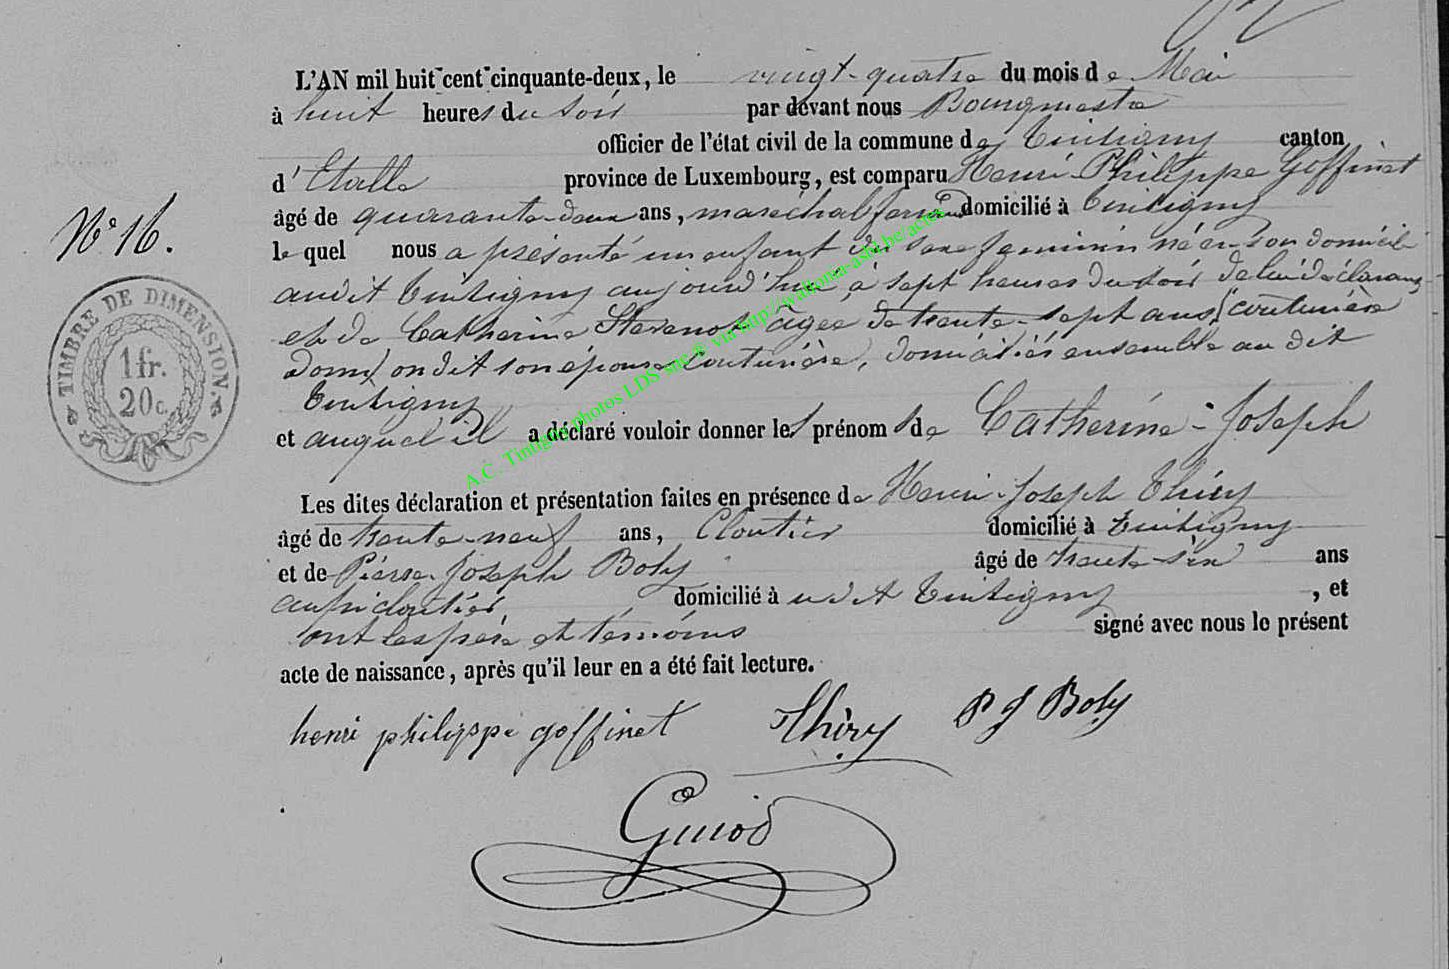 L'AN mil huit cent cinquante-deux, le vingt-quatre du mois de Mai
à huit heures du soir par devant nous Bourgmestre
officier de l'état civil de la commune de Tintigny canton
d'Etalle province de Luxembourg, est comparu Henri Philippe Goffinet
âgé de quarante-deux ans, maréchal ferrant domicilié à Tintigny
N° 16.
le quel nous a présenté un enfant du sexe feminin né en son domicile
audit Tintigny aujourd'hui à sept heures du soir de lui déclarant
et de Catherine âgée de trente-sept ans, couturière
son épouse couturière, domiciliés ensemble au dit
Tintigny
et auquel il a déclaré vouloir donner les prénoms de Catherine-Joseph
Les dites déclaration et présentation faites en présence de Henri-Joseph Thiry
âgé de trente-neuf ans, Cloutier domicilié à Tintigny
et de Pierre-Joseph Boly âgé de trente-six ans
aussi cloutier domicilié à udit Tintigny, et
ont les père et témoins signé avec nous le présent
acte de naissance, après qu'il leur en a été fait lecture.
henri philippe goffinet Thiry P J Boly
TIMBRE DE DIMENSION
1 fr.
20 c.
A.C. Tintigny photos LDS sne ® via http://wallonia-asbl.be/actes